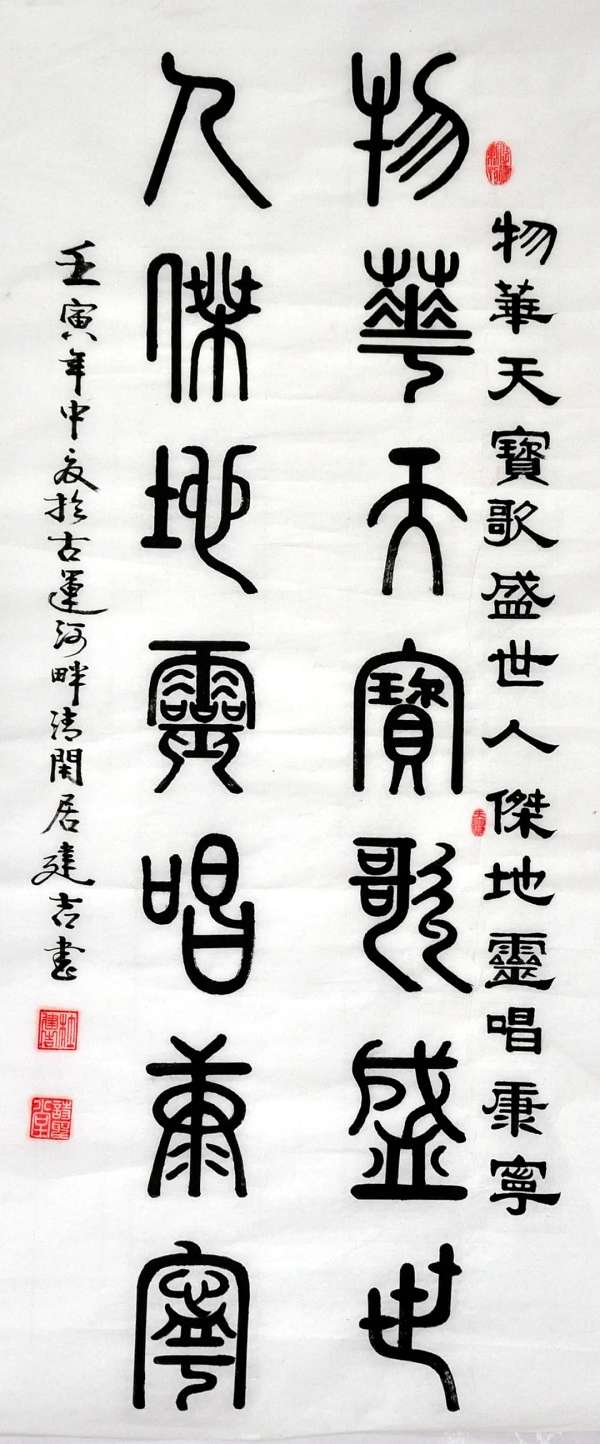 物華天寶歌盛世人傑地靈唱康寧
物華天寶歌盛世
人傑地靈唱康寧
壬寅年中夏於古運河畔清閑居建吉書